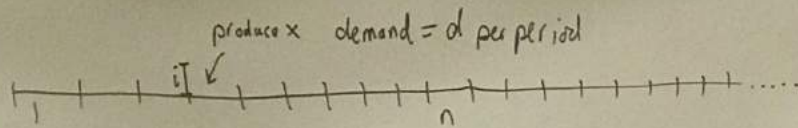 produce x demand = d per period
i
1 n .....